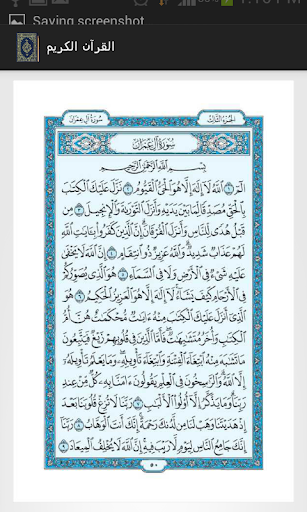 Saving screenshot...
القرآن الكريم
سُورَةُ آلِ عِمْرَانَ
الجُزْءُ الثَّالِثُ
سُورَةُ آلِ عِمْرَانَ
بِسْمِ ٱللَّهِ ٱلرَّحْمَٰنِ ٱلرَّحِيمِ
الٓمٓ ١ ٱللَّهُ لَآ إِلَٰهَ إِلَّا هُوَ ٱلْحَىُّ ٱلْقَيُّومُ ٢ نَزَّلَ عَلَيْكَ ٱلْكِتَٰبَ
بِٱلْحَقِّ مُصَدِّقًا لِّمَا بَيْنَ يَدَيْهِ وَأَنزَلَ ٱلتَّوْرَىٰةَ وَٱلْإِنجِيلَ ٣ مِن
قَبْلُ هُدًى لِّلنَّاسِ وَأَنزَلَ ٱلْفُرْقَانَ إِنَّ ٱلَّذِينَ كَفَرُوا۟ بِـَٔايَٰتِ ٱللَّهِ
لَهُمْ عَذَابٌ شَدِيدٌ وَٱللَّهُ عَزِيزٌ ذُو ٱنتِقَامٍ ٤ إِنَّ ٱللَّهَ لَا يَخْفَىٰ
عَلَيْهِ شَىْءٌ فِى ٱلْأَرْضِ وَلَا فِى ٱلسَّمَآءِ ٥ هُوَ ٱلَّذِى يُصَوِّرُكُمْ
فِى ٱلْأَرْحَامِ كَيْفَ يَشَآءُ لَآ إِلَٰهَ إِلَّا هُوَ ٱلْعَزِيزُ ٱلْحَكِيمُ ٦ هُوَ
ٱلَّذِىٓ أَنزَلَ عَلَيْكَ ٱلْكِتَٰبَ مِنْهُ ءَايَٰتٌ مُّحْكَمَٰتٌ هُنَّ أُمُّ
ٱلْكِتَٰبِ وَأُخَرُ مُتَشَٰبِهَٰتٌ فَأَمَّا ٱلَّذِينَ فِى قُلُوبِهِمْ زَيْغٌ فَيَتَّبِعُونَ
مَا تَشَٰبَهَ مِنْهُ ٱبْتِغَآءَ ٱلْفِتْنَةِ وَٱبْتِغَآءَ تَأْوِيلِهِۦ وَمَا يَعْلَمُ تَأْوِيلَهُۥٓ
إِلَّا ٱللَّهُ وَٱلرَّٰسِخُونَ فِى ٱلْعِلْمِ يَقُولُونَ ءَامَنَّا بِهِۦ كُلٌّ مِّنْ عِندِ
رَبِّنَا وَمَا يَذَّكَّرُ إِلَّآ أُو۟لُوا۟ ٱلْأَلْبَٰبِ ٧ رَبَّنَا لَا تُزِغْ قُلُوبَنَا بَعْدَ
إِذْ هَدَيْتَنَا وَهَبْ لَنَا مِن لَّدُنكَ رَحْمَةً إِنَّكَ أَنتَ ٱلْوَهَّابُ ٨ رَبَّنَآ
إِنَّكَ جَامِعُ ٱلنَّاسِ لِيَوْمٍ لَّا رَيْبَ فِيهِ إِنَّ ٱللَّهَ لَا يُخْلِفُ ٱلْمِيعَادَ ٩
٥٠